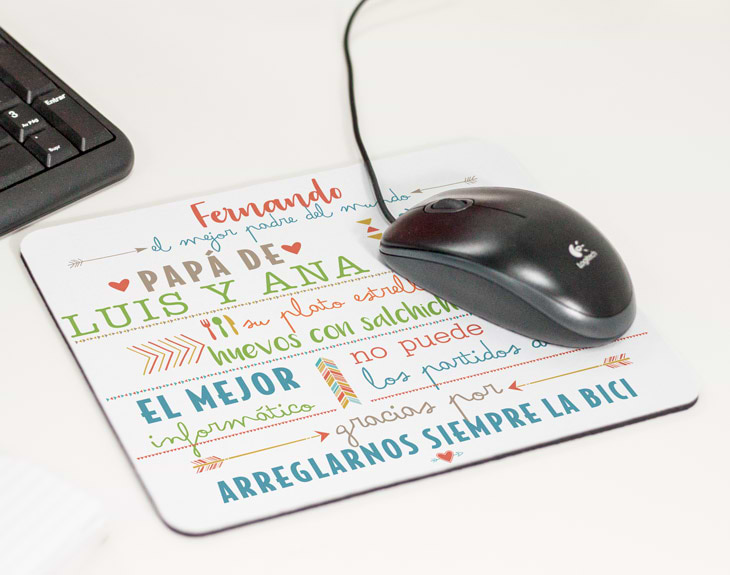 Fernando
el mejor padre del mundo
PAPÁ DE
LUIS Y ANA
su plato estrella
huevos con salchich
EL MEJOR
informático
no puede
los partidos d
gracias por
ARREGLARNOS SIEMPRE LA BICI
logitech
Entrar
3
Av Pág
Supr